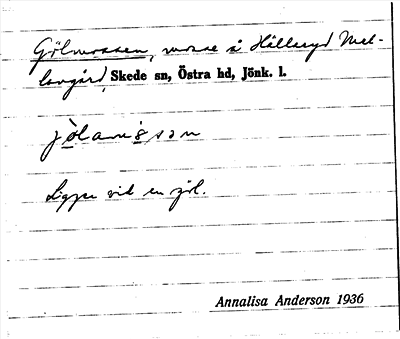 Gölmossen, mosse å Hällaryd Mel-
langård, Skede sn, Östra hd, Jönk. l.
Ligger vid en göl.
Annalisa Anderson 1936